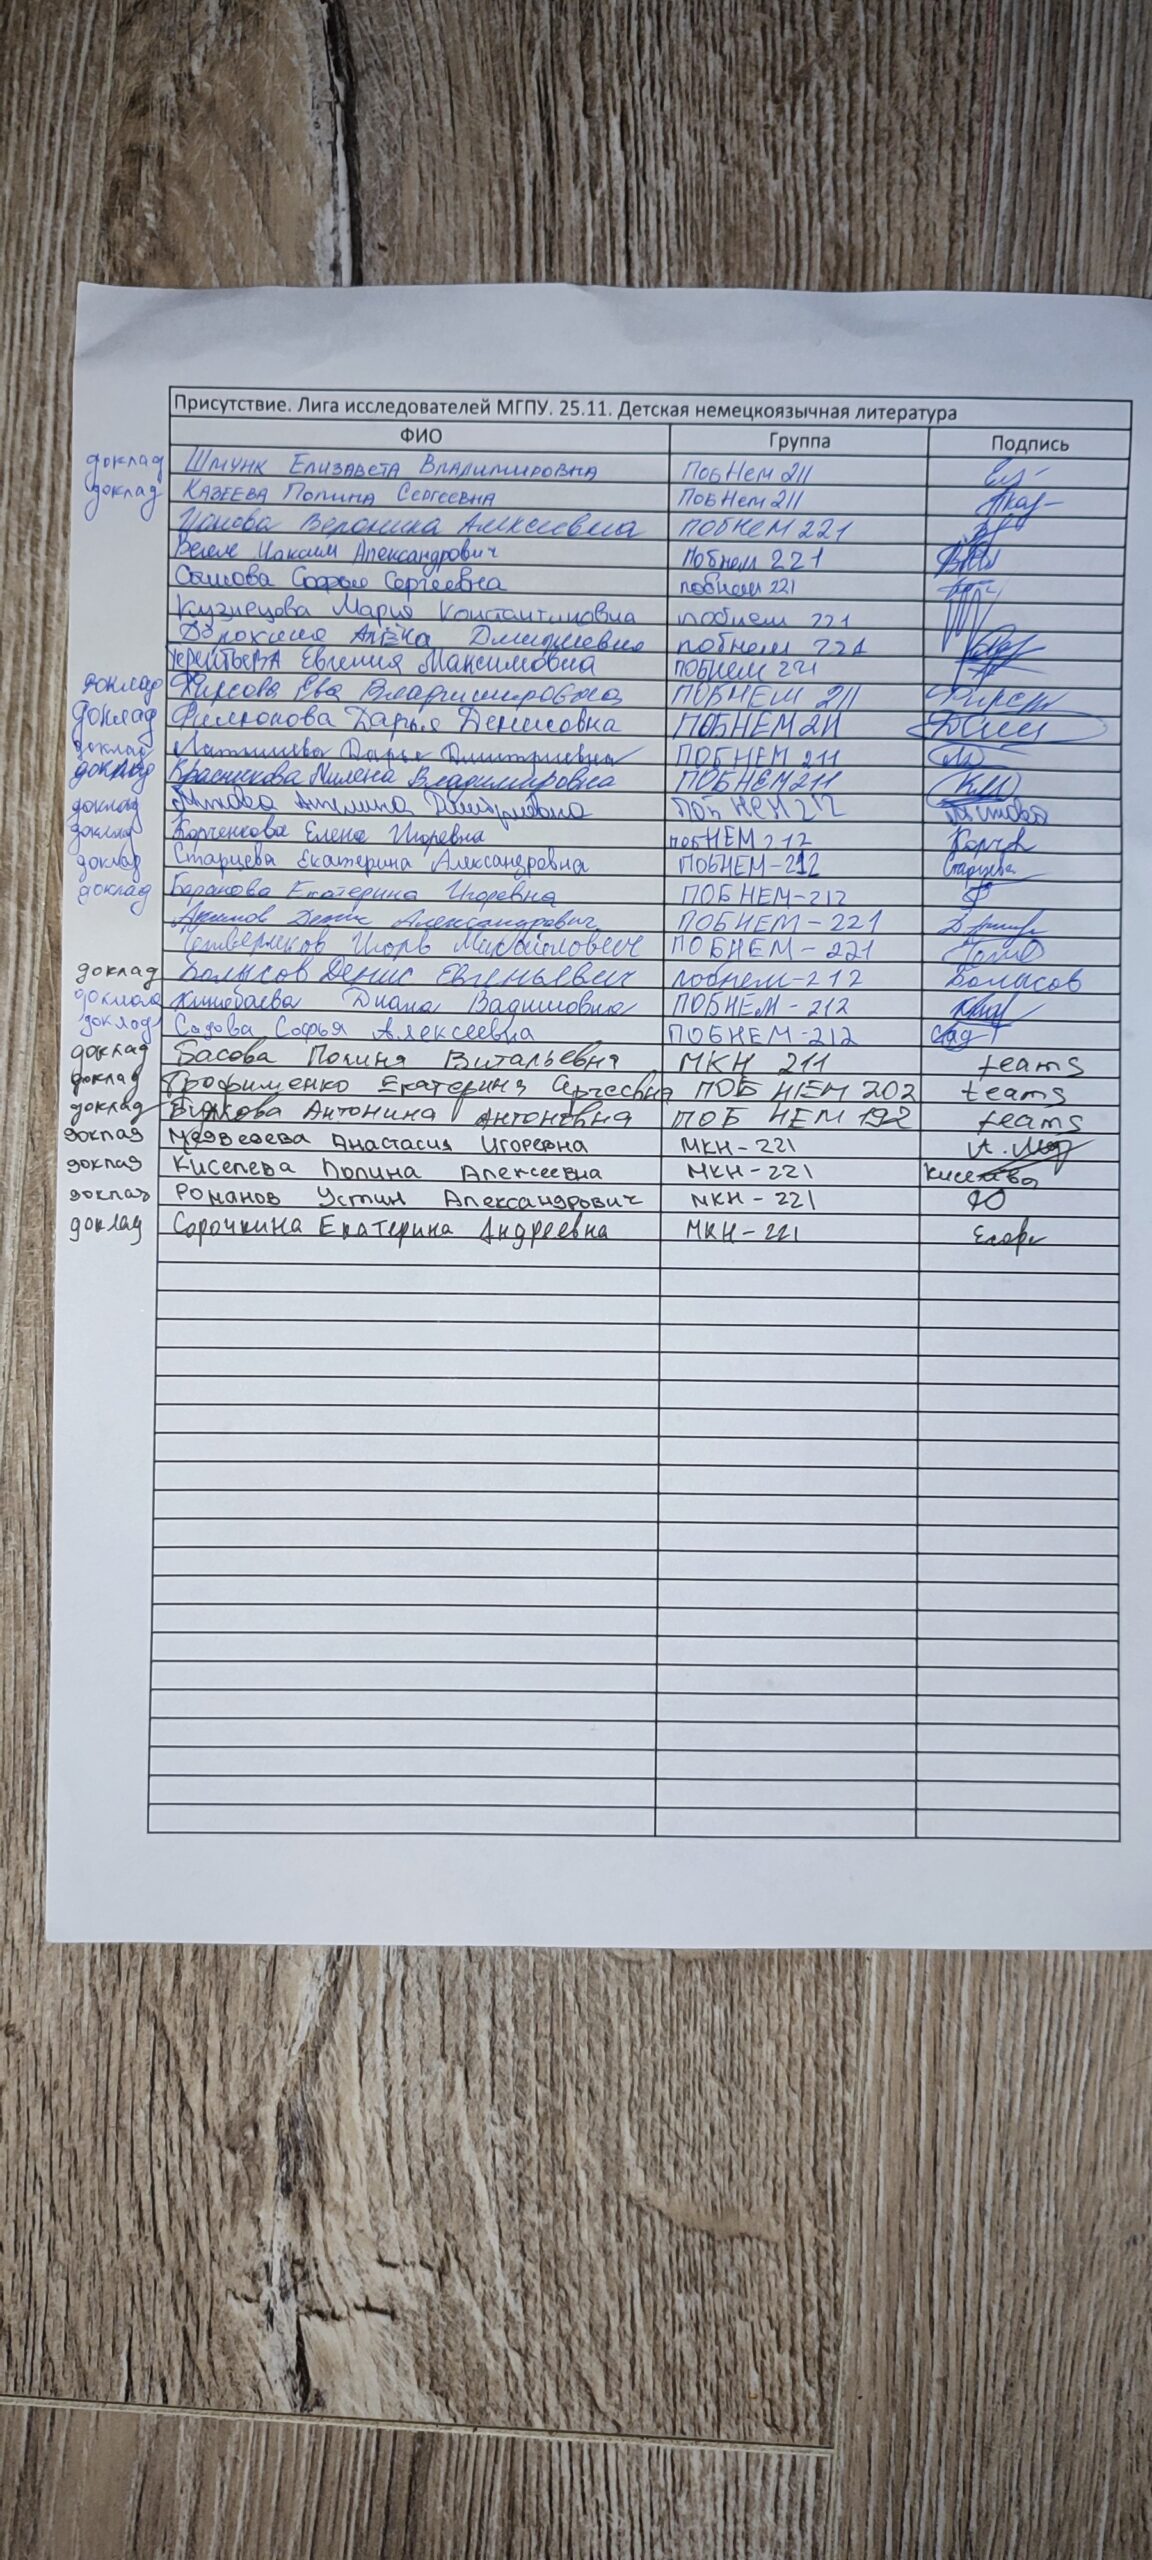 Присутствие. Лига исследователей МГПУ. 25.11. Детская немецкоязычная литература
ФИО Группа Подпись
доклад Шмунк Елизавета Владимировна ПобНем 211
доклад Казеева Полина Сергеевна ПобНем 211
Вероника Алексеевна ПОБНЕМ 221
Максим Александрович Побнем 221
Софья Сергеевна побнем 221
Кузнецова Мария Константиновна побнем 221
Алёна Дмитриевна побнем 221
Терентьева Евгения Максимовна побнем 221
доклад Фирсова Ева Владимировна ПОБНЕМ 211
доклад Филюкова Дарья Денисовна ПОБНЕМ 211
доклад Дарья Дмитриевна ПОБНЕМ 211
доклад Милена Владимировна ПОБНЕМ 211
доклад Ангелина Дмитриевна ПОБНЕМ 212
доклад Корченкова Елена Игоревна побНЕМ 212
доклад Старцева Екатерина Александровна ПОБНЕМ-212 Старцева
доклад Баранова Екатерина Игоревна ПОБНЕМ-212
Денис Александрович ПОБНЕМ-221
Четвериков Игорь Михайлович ПОБНЕМ-221
доклад Болысов Денис Евгеньевич побнем-212 Болысов
доклад Диана Вадимовна ПОБНЕМ-212
доклад Садова Софья Алексеевна ПОБНЕМ-212
доклад Басова Полина Витальевна МКН 211 teams
доклад Трофименко Екатерина Сергеевна ПОБ НЕМ 202 teams
доклад Антонина Антоновна ПОБ НЕМ 192 teams
доклад Медведева Анастасия Игоревна МКН-221
доклад Киселева Полина Алексеевна МКН-221 Киселева
доклад Романов Устин Александрович МКН-221
доклад Сорочкина Екатерина Андреевна МКН-221